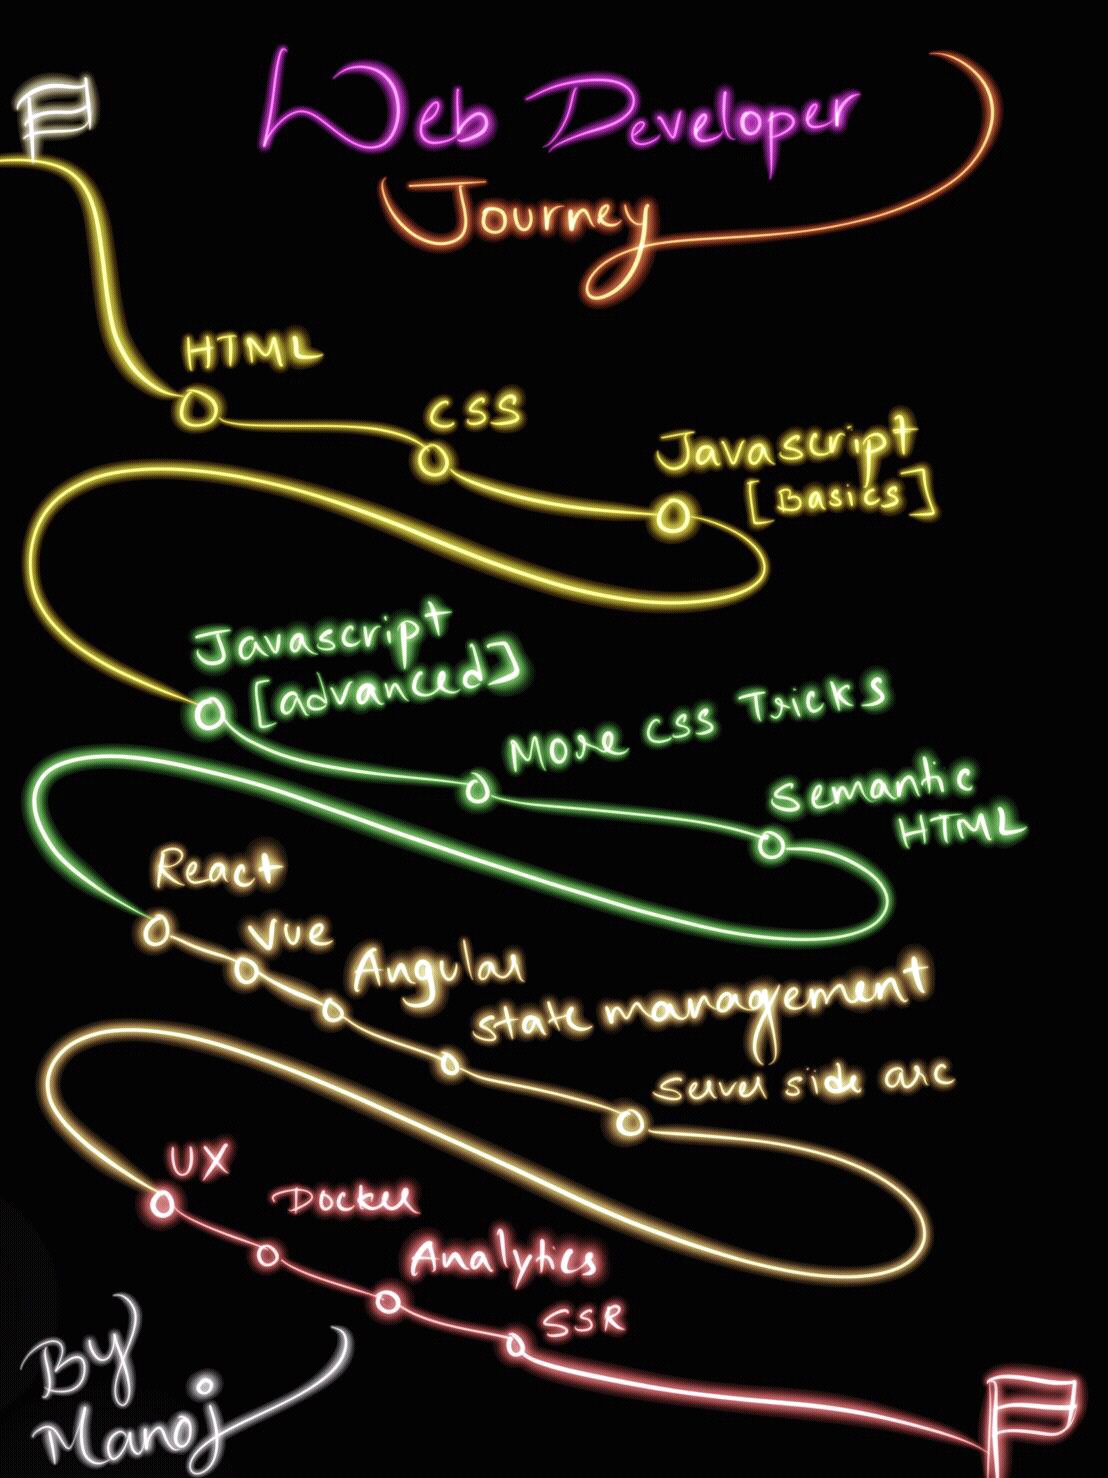 Web Developer
Journey
HTML
CSS
Javascript
[Basics]
Javascript
[advanced]
More CSS Tricks
Semantic
HTML
React
Vue
Angular
state management
Server side arc
UX
Docker
Analytics
SSR
By
Manoj